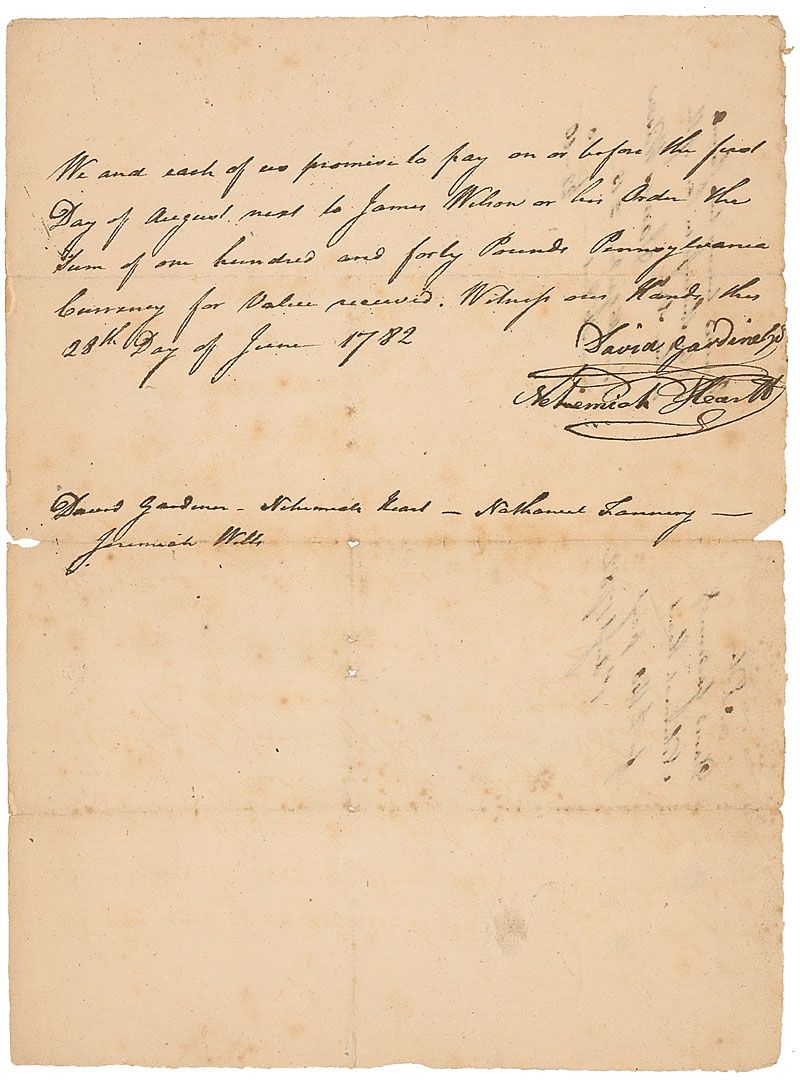 We and each of us promise to pay on or before the first
Day of August next to James Wilson or his Order the
Sum of one hundred and forty Pounds Pennsylvania
Currency for Value received. Witness our Hands this
28th Day of June 1782
David Gardiner
Nehemiah Heartt
David Gardiner - Nehemiah Heart - Nathaniel —
Jeremiah Wills